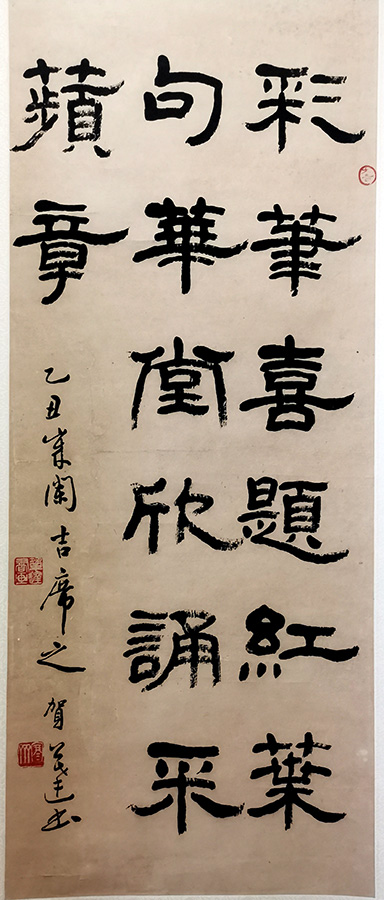 彩筆喜題紅葉
句華堂欣誦采
蘋章
乙丑吉席之賀